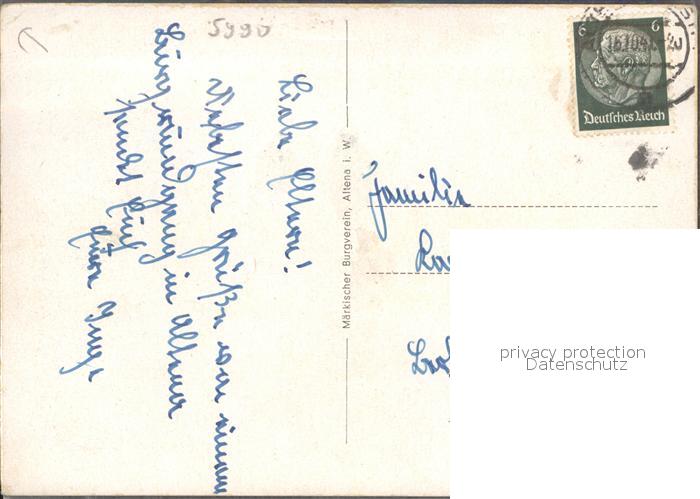 5990
Liebe Eltern!
Die besten Grüße von einem
Burgrundgang in Altena
sendet Euch
Eure Inge
Märkischer Burgverein, Altena i. W.
6 6
16.10.41
Deutsches Reich
Familie
privacy protection
Datenschutz